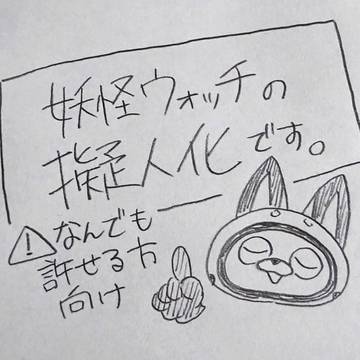 妖怪ウォッチの
擬人化です。
なんでも
許せる方
向け